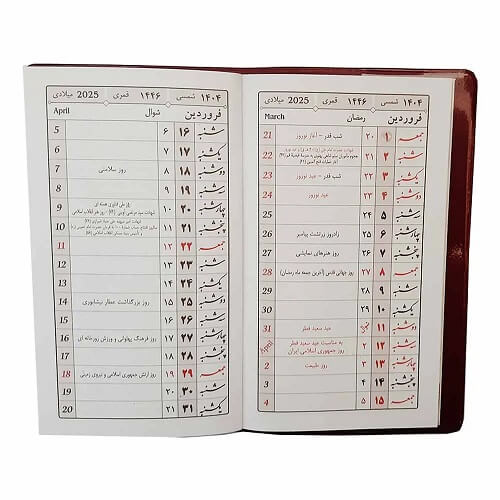 ۱۴۰۴ شمسی ۱۴۴۶ قمری 2025 میلادی
فروردین رمضان March
جمعه ۱ ۲۰ شب قدر - آغاز نوروز 21
شنبه ۲ ۲۱ 22
یکشنبه ۳ ۲۲ شب قدر - عید نوروز 23
دوشنبه ۴ ۲۳ عید نوروز 24
سه‌شنبه ۵ ۲۴ 25
چهارشنبه ۶ ۲۵ زادروز زرتشت پیامبر 26
پنجشنبه ۷ ۲۶ روز هنرهای نمایشی 27
جمعه ۸ ۲۷ روز جهانی قدس (آخرین جمعه ماه رمضان) 28
شنبه ۹ ۲۸ 29
یکشنبه ۱۰ ۲۹ 30
دوشنبه ۱۱ عید سعید فطر 31
سه‌شنبه ۱۲ ۲ به مناسبت عید سعید فطر April
روز جمهوری اسلامی ایران
چهارشنبه ۱۳ ۳ روز طبیعت 2
پنجشنبه ۱۴ ۴ 3
جمعه ۱۵ ۵ 4
۱۴۰۴ شمسی ۱۴۴۶ قمری 2025 میلادی
فروردین شوال April
شنبه ۱۶ ۶ 5
یکشنبه ۱۷ ۷ 6
دوشنبه ۱۸ ۸ روز سلامتی 7
سه‌شنبه ۱۹ ۹ 8
چهارشنبه ۲۰ ۱۰ روز ملی فناوری هسته ای 9
پنجشنبه ۲۱ ۱۱ 10
جمعه ۲۲ ۱۲ 11
شنبه ۲۳ ۱۳ 12
یکشنبه ۲۴ ۱۴ 13
دوشنبه ۲۵ ۱۵ روز بزرگداشت عطار نیشابوری 14
سه‌شنبه ۲۶ ۱۶ 15
چهارشنبه ۲۷ ۱۷ روز فرهنگ پهلوانی و ورزش زورخانه ای 16
پنجشنبه ۲۸ ۱۸ 17
جمعه ۲۹ ۱۹ روز ارتش جمهوری اسلامی و نیروی زمینی 18
شنبه ۳۰ ۲۰ 19
یکشنبه ۳۱ ۲۱ 20